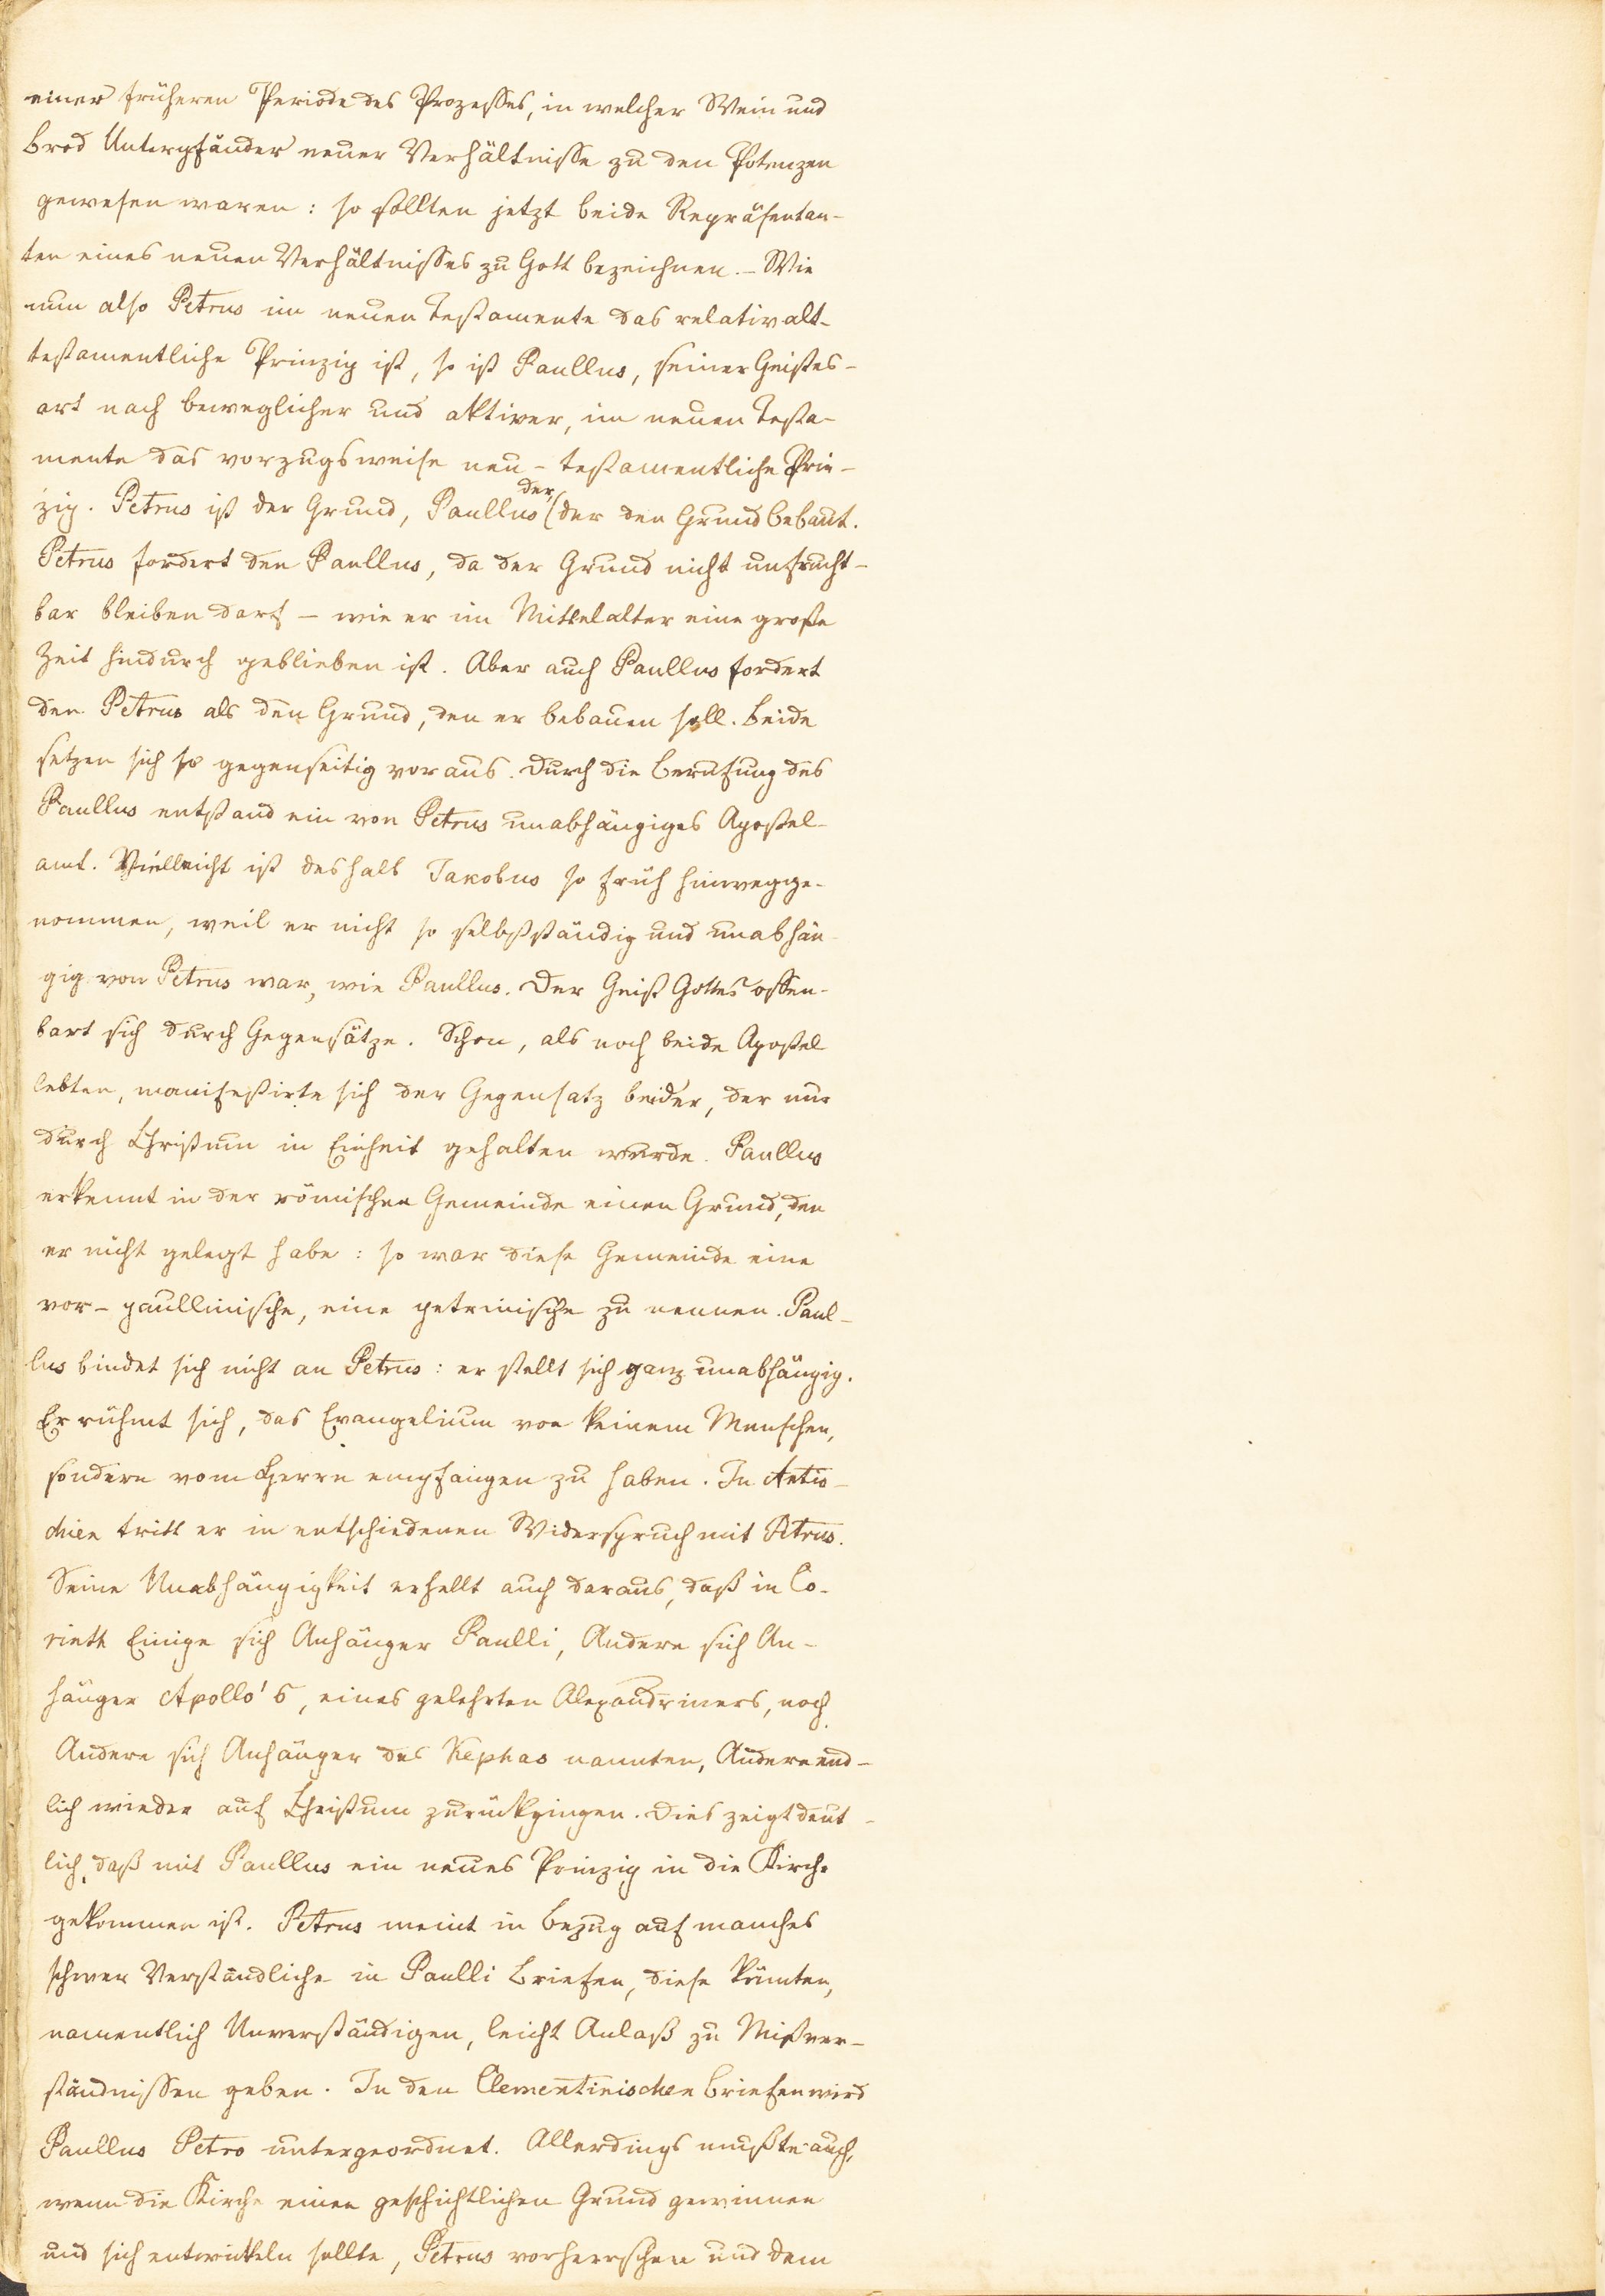 einer früheren Periode des Prozesses, in welcher Wein und
Brod Unterpfänder neuer Verhältnisse zu den Potenzen
gewesen waren: so sollten jetzt beide Repräsentan-
ten eines neuen Verhältnisses zu Gott bezeichnen. – Wie
nun also Petrus im neuen Testamente das relativ alt-
testamentliche Prinzip ist, so ist Paullus, seiner Geistes-
art nach beweglicher und aktiver, im neuen Testa-
mente das vorzugsweise neu-testamentliche Prin-
zip. Petrus ist der Grund, Paullus der, (der den Grund bebaut.
Petrus fordert den Paullus, da der Grund nicht unfrucht-
bar bleiben darf – wie er im Mittelalter eine große
Zeit hindurch geblieben ist. Aber auch Paullus fordert
den Petrus als den Grund, den er bebauen soll. Beide
setzen sich so gegenseitig voraus. Durch die Berufung des
Paullus entstand ein von Petrus unabhängiges Apostel-
amt. Vielleicht ist deshalb Jakobus so früh hinwegge-
nommen, weil er nicht so selbstständig und unabhän-
gig von Petrus war, wie Paullus. Der Geist Gottes offen-
bart sich durch Gegensätze. Schon, als noch beide Apostel
lebten, manifestirte sich der Gegensatz beider, der nur
durch Christum in Einheit gehalten wurde. Paullus
erkennt in der römischen Gemeinde einen Grund, den
er nicht gelegt habe: so war diese Gemeinde eine
vor-paullinische, eine petrinische zu nennen. Paul-
lus bindet sich nicht an Petrus: er stellt sich ganz unabhängig.
Er rühmt sich, das Evangelium von keinem Menschen,
sondern vom Herrn empfangen zu haben. In Antio-
chien tritt er in entschiedenen Widerspruch mit Petrus.
Seine Unabhängigkeit erhellt auch daraus, daß in Co-
rinth Einige sich Anhänger Paulli, Andere sich An-
hänger Apollo's, eines gelehrten Alexandriners, noch
Andere sich Anhänger des Kephas nannten, Andere end-
lich wieder auf Christum zurückgingen. Dies zeigt deut-
lich, daß mit Paullus ein neues Prinzip in die Kirche
gekommen ist. Petrus meint in Bezug auf manches
schwer Verständliche in Paulli Briefen, diese könnten,
namentlich Unverständigen, leicht Anlaß zu Mißver-
ständnissen geben. In den Clementinischen Briefen wird
Paullus Petro untergeordnet. Allerdings mußte auch,
wenn die Kirche einen geschichtlichen Grund gewinnen
und sich entwickeln sollte, Petrus vorherrschen und dem